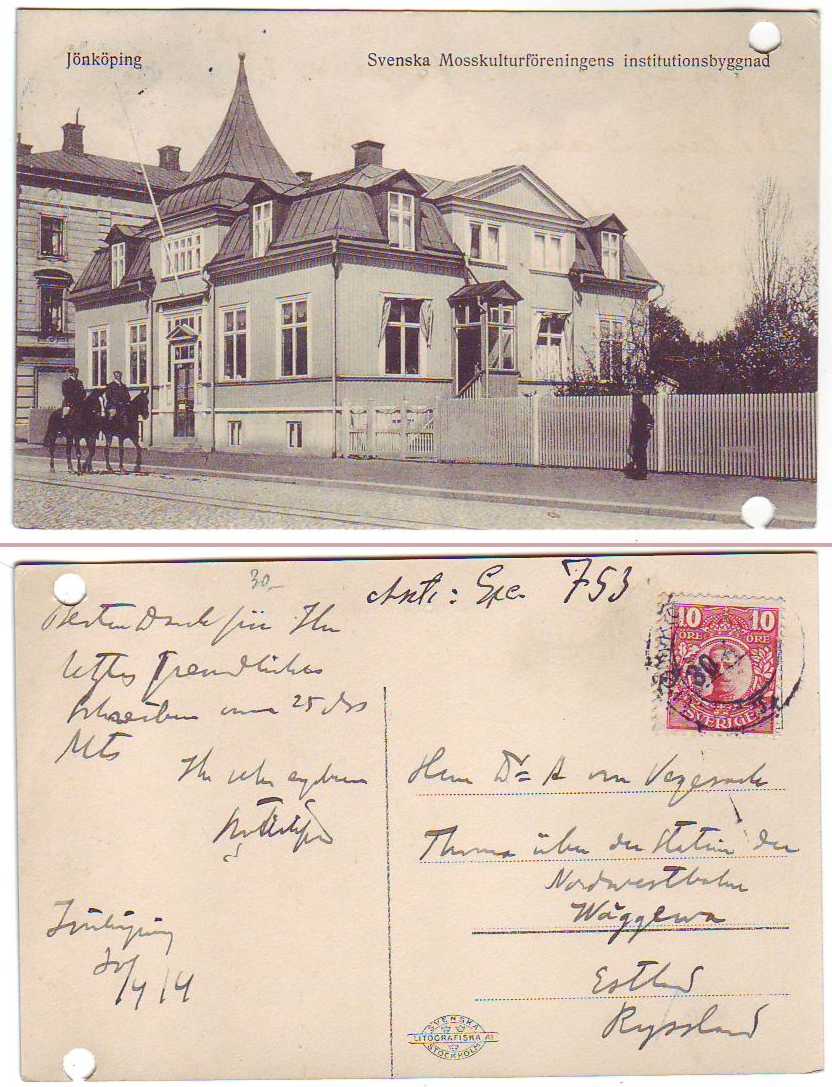 Jönköping
Svenska Mosskulturföreningens institutionsbyggnad
30.-
753
Besten Dank für Ihr
letztes freundliches
Schreiben vom 25 dss
Mts
Ihr sehr ergebener
Jönköping
30/4 14
10 10
ÖRE ÖRE
SVERIGE
Herrn Dr A von Vegesack
Thoma über der Station der
Nordwestbahn
Wäggewa
Estland
Ryssland
SVENSKA
LITOGRAFISKA AB
STOCKHOLM